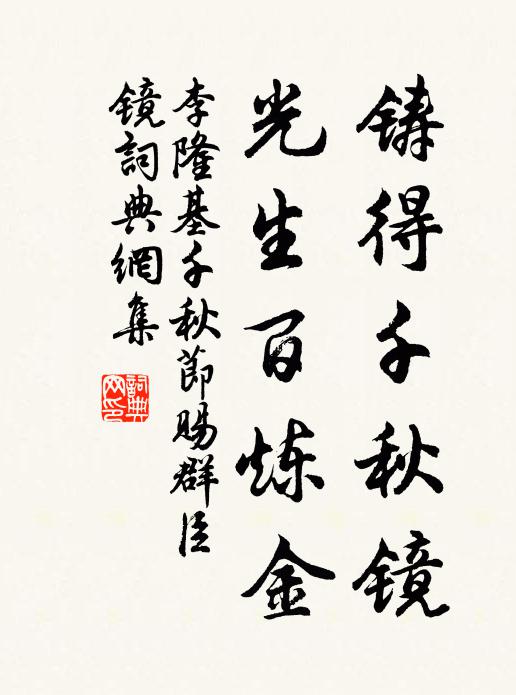 铸得千秋镜
光生百炼金
李隆基千秋節賜群臣
镜詞典網集
詞典
网印